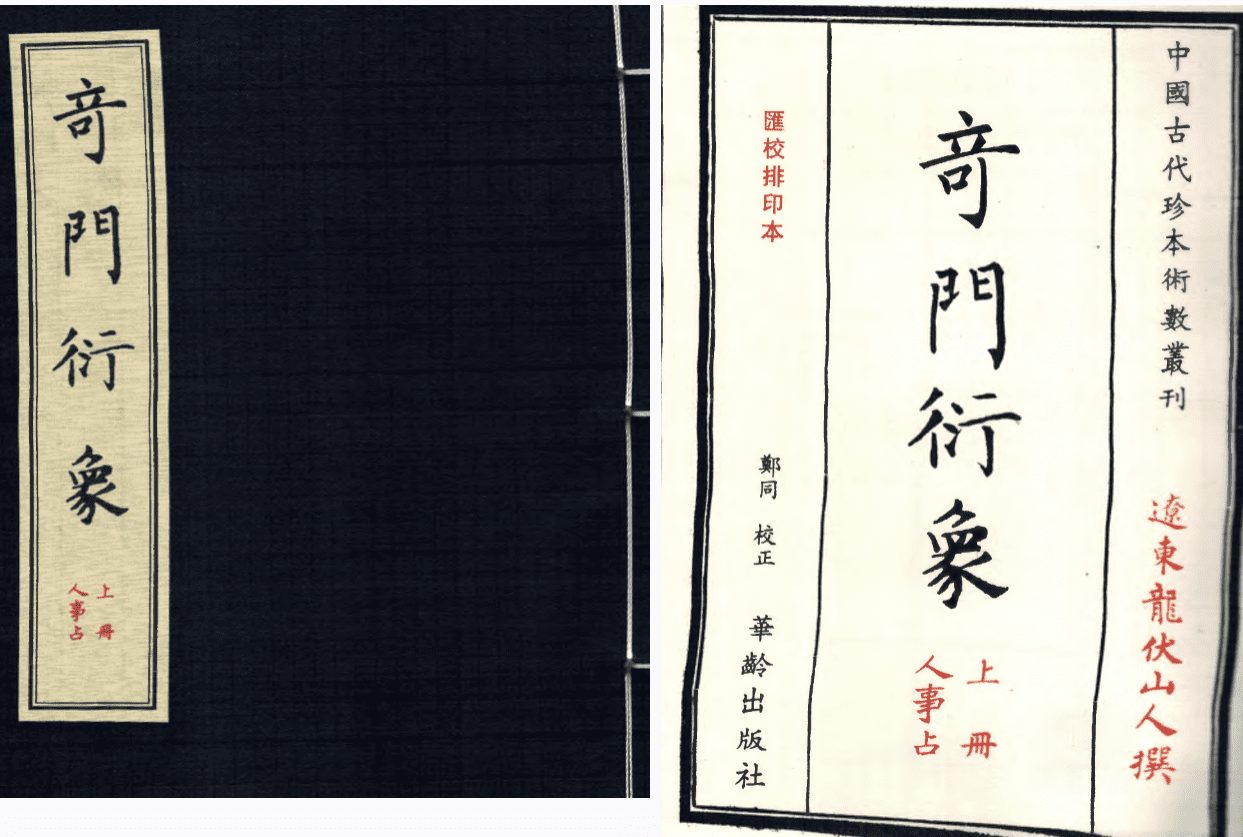 奇門衍象
上冊
人事占
中國古代珍本術數叢刊
遼東龍伏山人撰
奇門衍象
上冊
人事占
匯校排印本
鄭同 校正 華齡出版社